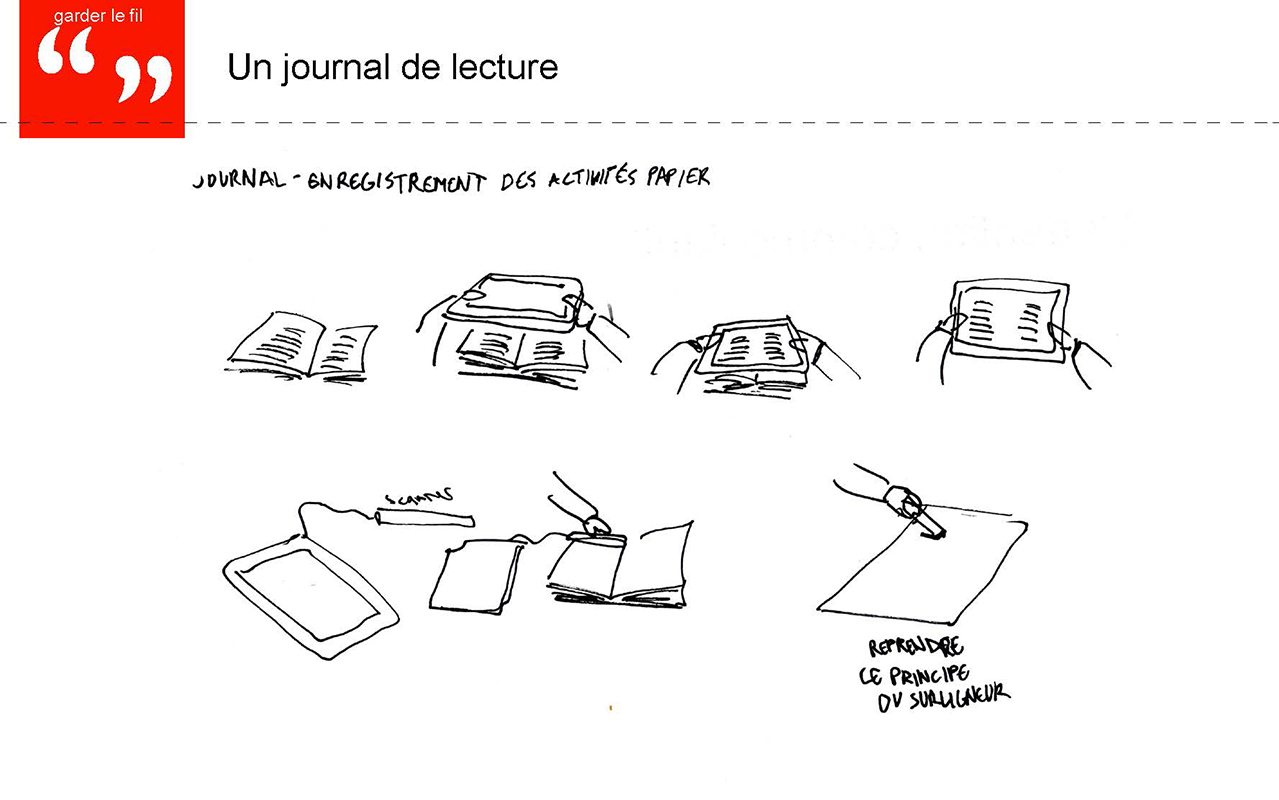 garder le fil
“ ”
Un journal de lecture
JOURNAL - ENREGISTREMENT DES ACTIVITÉS PAPIER
SCANNER
REPRENDRE
LE PRINCIPE
DU SURLIGNEUR